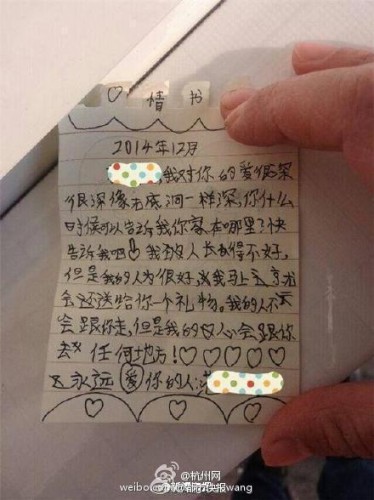 ♡ 情书
2014年12月
,我对你的爱很深
很深像无底洞一样深,你什么
时候可以告诉我你家在哪里?快
告诉我吧!我的人长得不好,
但是我的人为很好,我马上
会还送给你一个礼物。我的人不
会跟你走,但是我的心会跟你
去任何地方!♡♡♡♡♡
永远爱你的人:
@杭州网
weibo.com/hangzhouwang